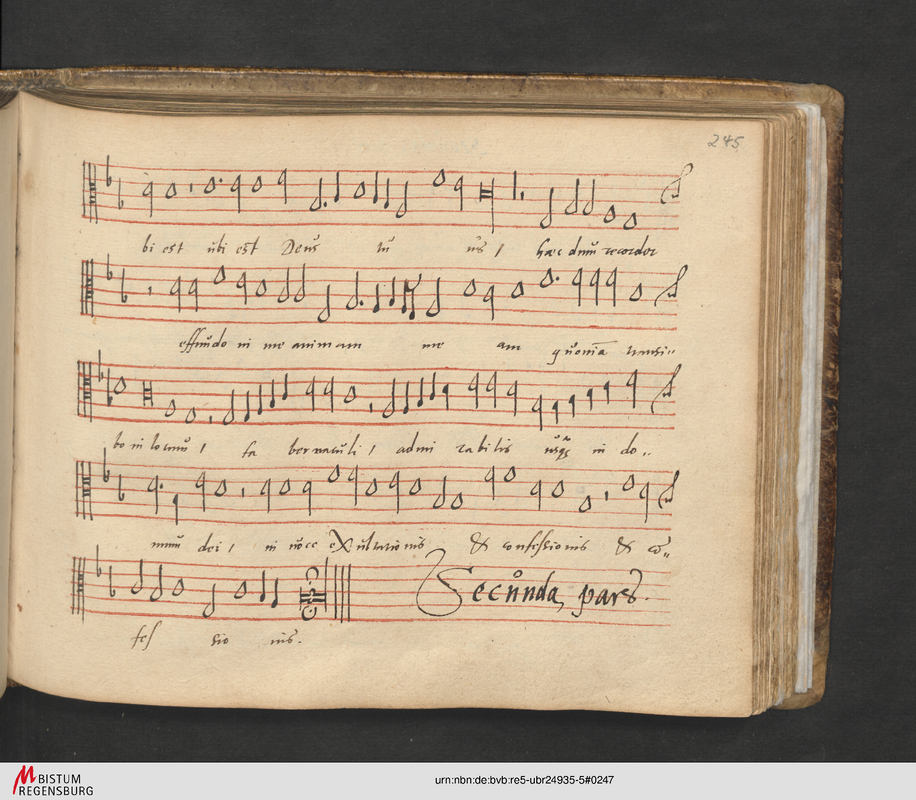 245
bi est ubi est Deus tu us / haec dum recordor
effundo in me animam me am quoniã transi=
bo in locum / ta bernaculi / admi rabilis usqȝ in do=
mum dei / in uoce eXultationis & confessionis & cõ=
Secunda pars.
fes sio nis.
BISTUM
REGENSBURG
urn:nbn:de:bvb:re5-ubr24935-5#0247